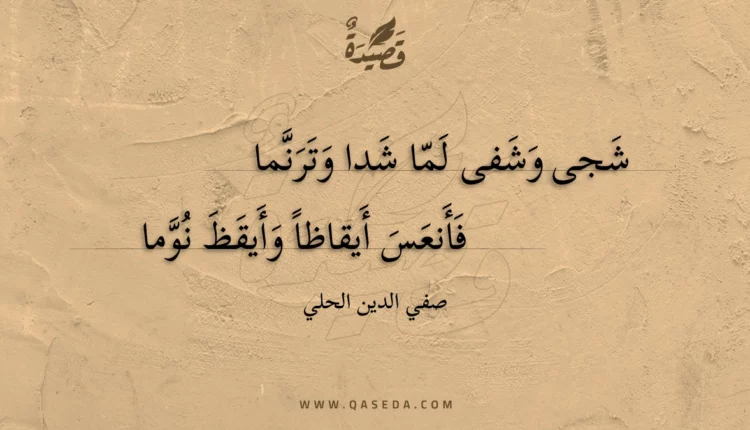 قَصِيْدَةٌ
شَجى وَشَفى لَمّا شَدا وَتَرَنَّما
فَأَنعَسَ أَيقاظاً وَأَيقَظَ نُوَّما
صفي الدين الحلي
WWW.QASEDA.COM